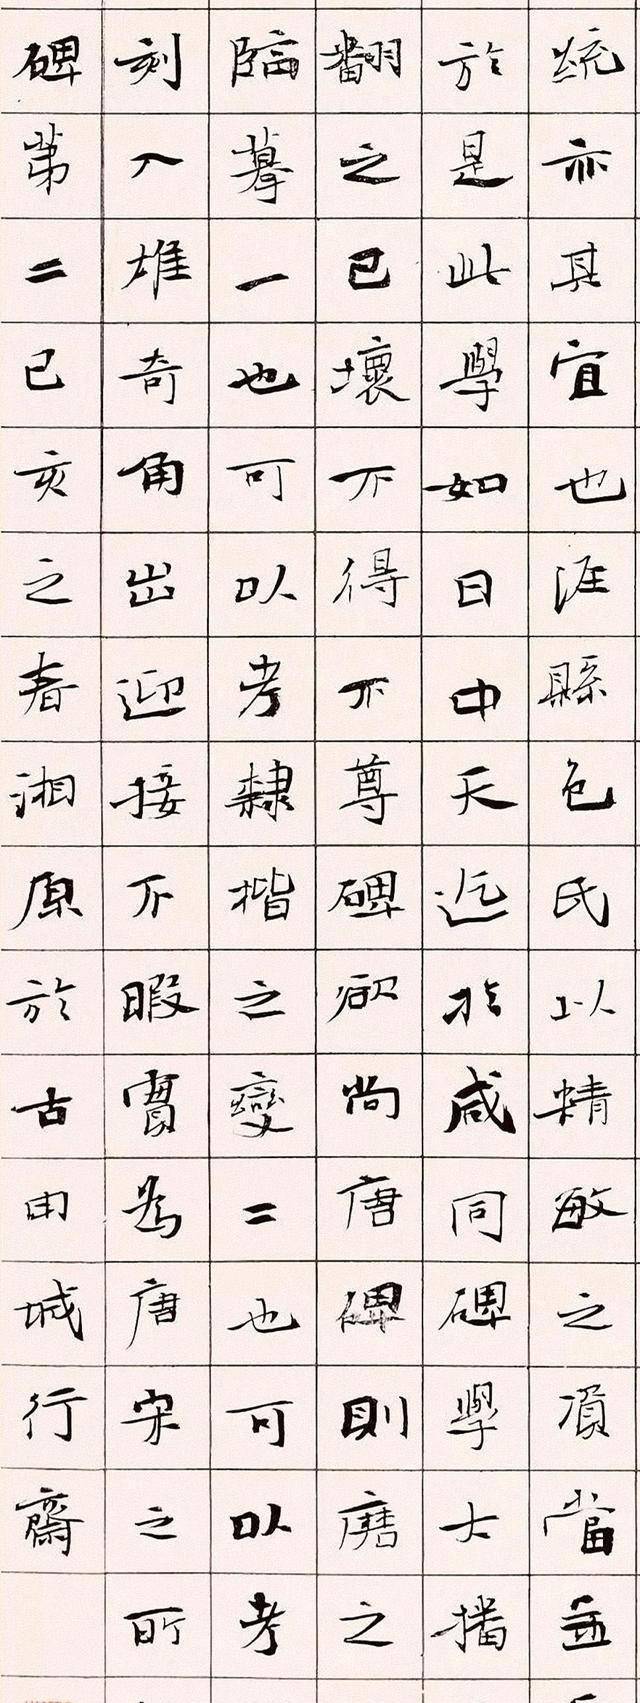 統亦其宜也涇縣包氏以精敏之資當並
於是此學如日中天迄於咸同碑學大播
翻之已壞不得不尊碑欲尚唐碑則磨之
臨摹一也可以考隸楷之變二也可以考
刻入堆奇角出迎接不暇實為唐宋之所
碑第二己亥之春湘原於古由城行齋